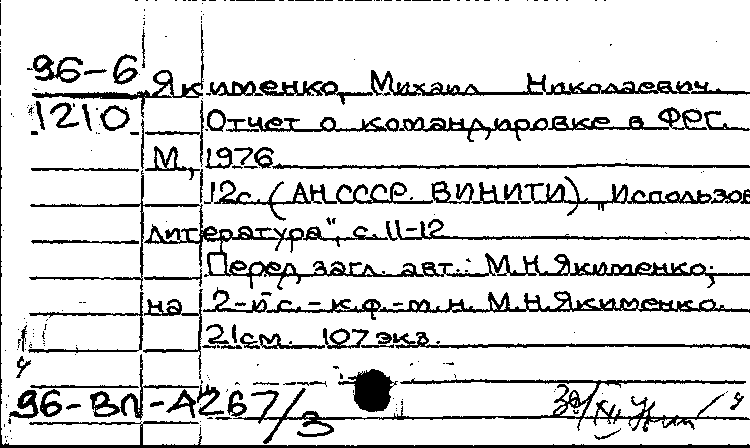 96-6
1210
Якименко, Михаил Николаевич.
Отчет о командировке в ФРГ.
М., 1976.
12с. (АН СССР. ВИНИТИ). "Использов
литература", с. 11-12
Перед загл. авт.: М.Н. Якименко;
на 2-й с. - к.ф.-м.н. М.Н. Якименко.
21см. 107 экз.
96-ВЛ-А267/3